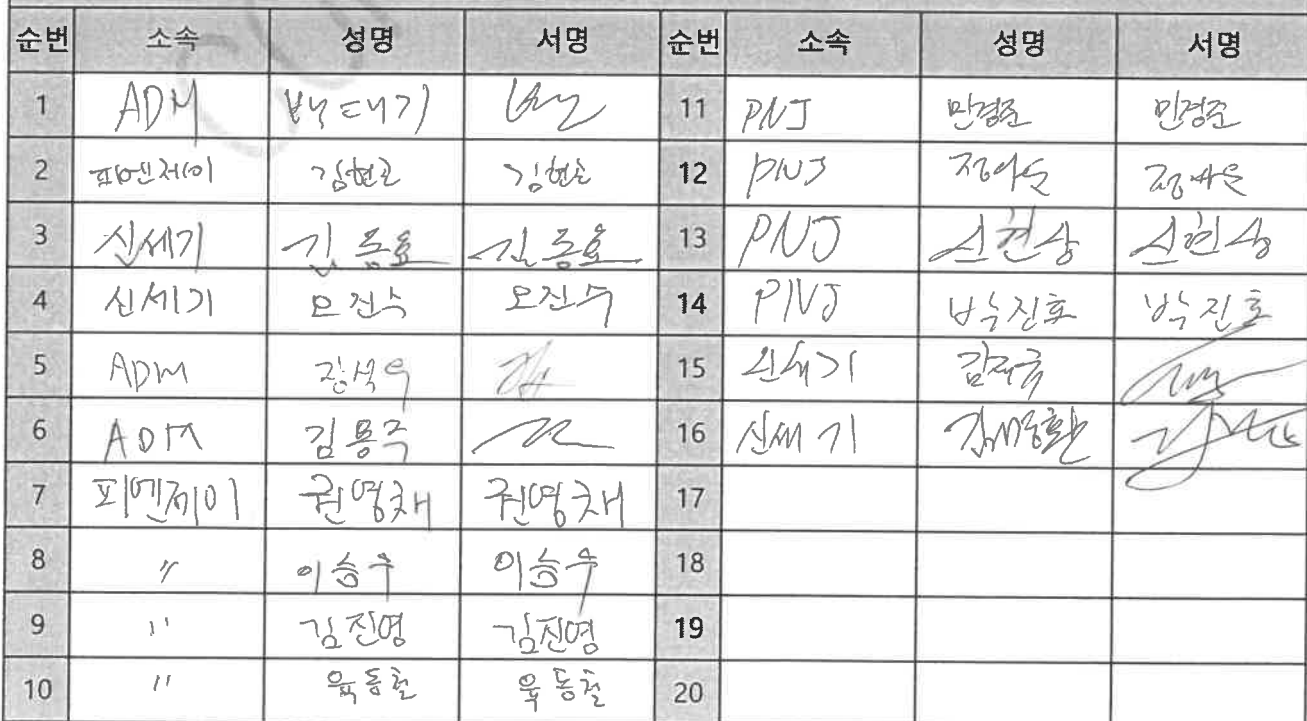 순번 소속 성명 서명 순번 소속 성명 서명
1 ADM 백대기 11 PNJ 민경준 민경준
2 피엔제이 김현근 김현근 12 PNJ
3 신세기 김동효 김동효 13 PNJ 신현상 신현상
4 신세기 오진수 오진수 14 PNJ 박진호 박진호
5 ADM 장석우 15 신세기
6 ADM 김용주 16 신세기
7 피엔제이 권영채 권영채 17
8 〃 이승우 이승우 18
9 〃 김진영 김진영 19
10 〃 육동철 육동철 20